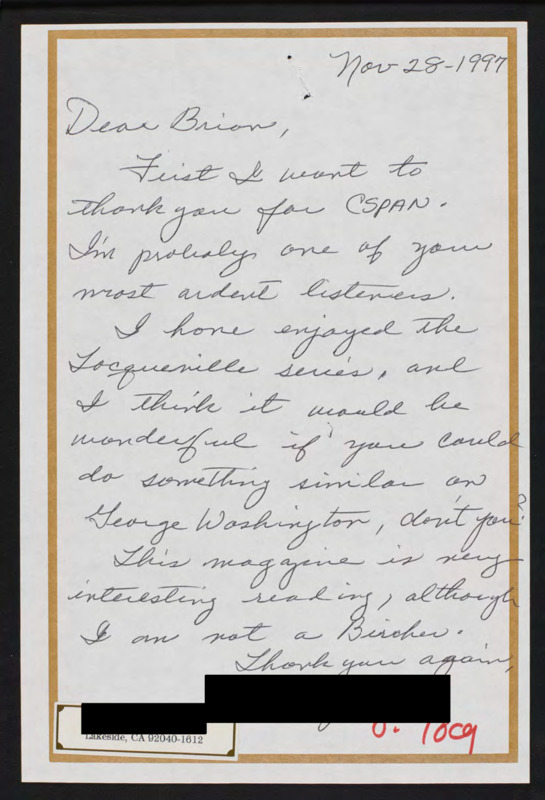 Nov 28-1997
Dear Brian,
First I want to
thank you for CSPAN.
I'm probaly one of your
most ardent listeners.
I have enjoyed the
Tocqueville series, and
I think it would be
wonderful if you could
do something similar on
George Washington, don't you?
This magazine is very
interesting reading, although
I am not a Bircher.
Thank you again,
Lakeside, CA 92040-1612